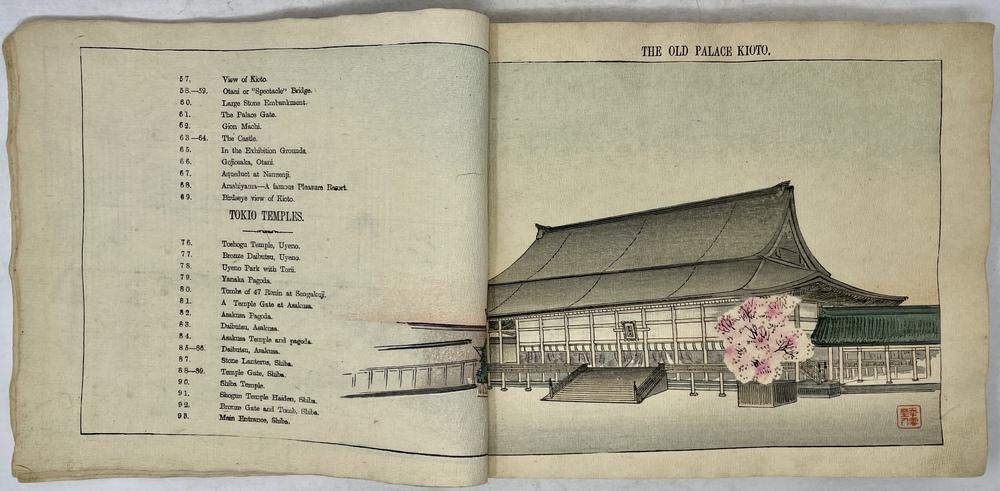 57, View of Kioto.
58.—59. Otani or "Spectacle" Bridge.
60. Large Stone Embankment.
61. The Palace Gate.
62. Gion Machi.
63—64. The Castle.
65. In the Exhibition Grounds.
66. Gojiosaka, Otani.
67. Aqueduct at Nanzenji.
68. Arashiyama—A famous Pleasure Resort.
69. Birdseye view of Kioto.
TOKIO TEMPLES.
76. Toshogu Temple, Uyeno.
77. Bronze Daibutsu, Uyeno.
78. Uyeno Park with Torii.
79. Yanaka Pagoda.
80. Tombs of 47 Ronin at Sengakuji.
81. A Temple Gate at Asakusa.
82. Asakusa Pagoda.
83. Daibutsu, Asakusa.
84. Asakusa Temple and pagoda.
85—86. Daibutsu, Asakusa.
87. Stone Lanterns, Shiba.
88—89. Temple Gate, Shiba.
90. Shiba Temple.
91. Shogun Temple Haiden, Shiba.
92. Bronze Gate and Tomb, Shiba.
93. Main Entrance, Shiba.
THE OLD PALACE KIOTO.